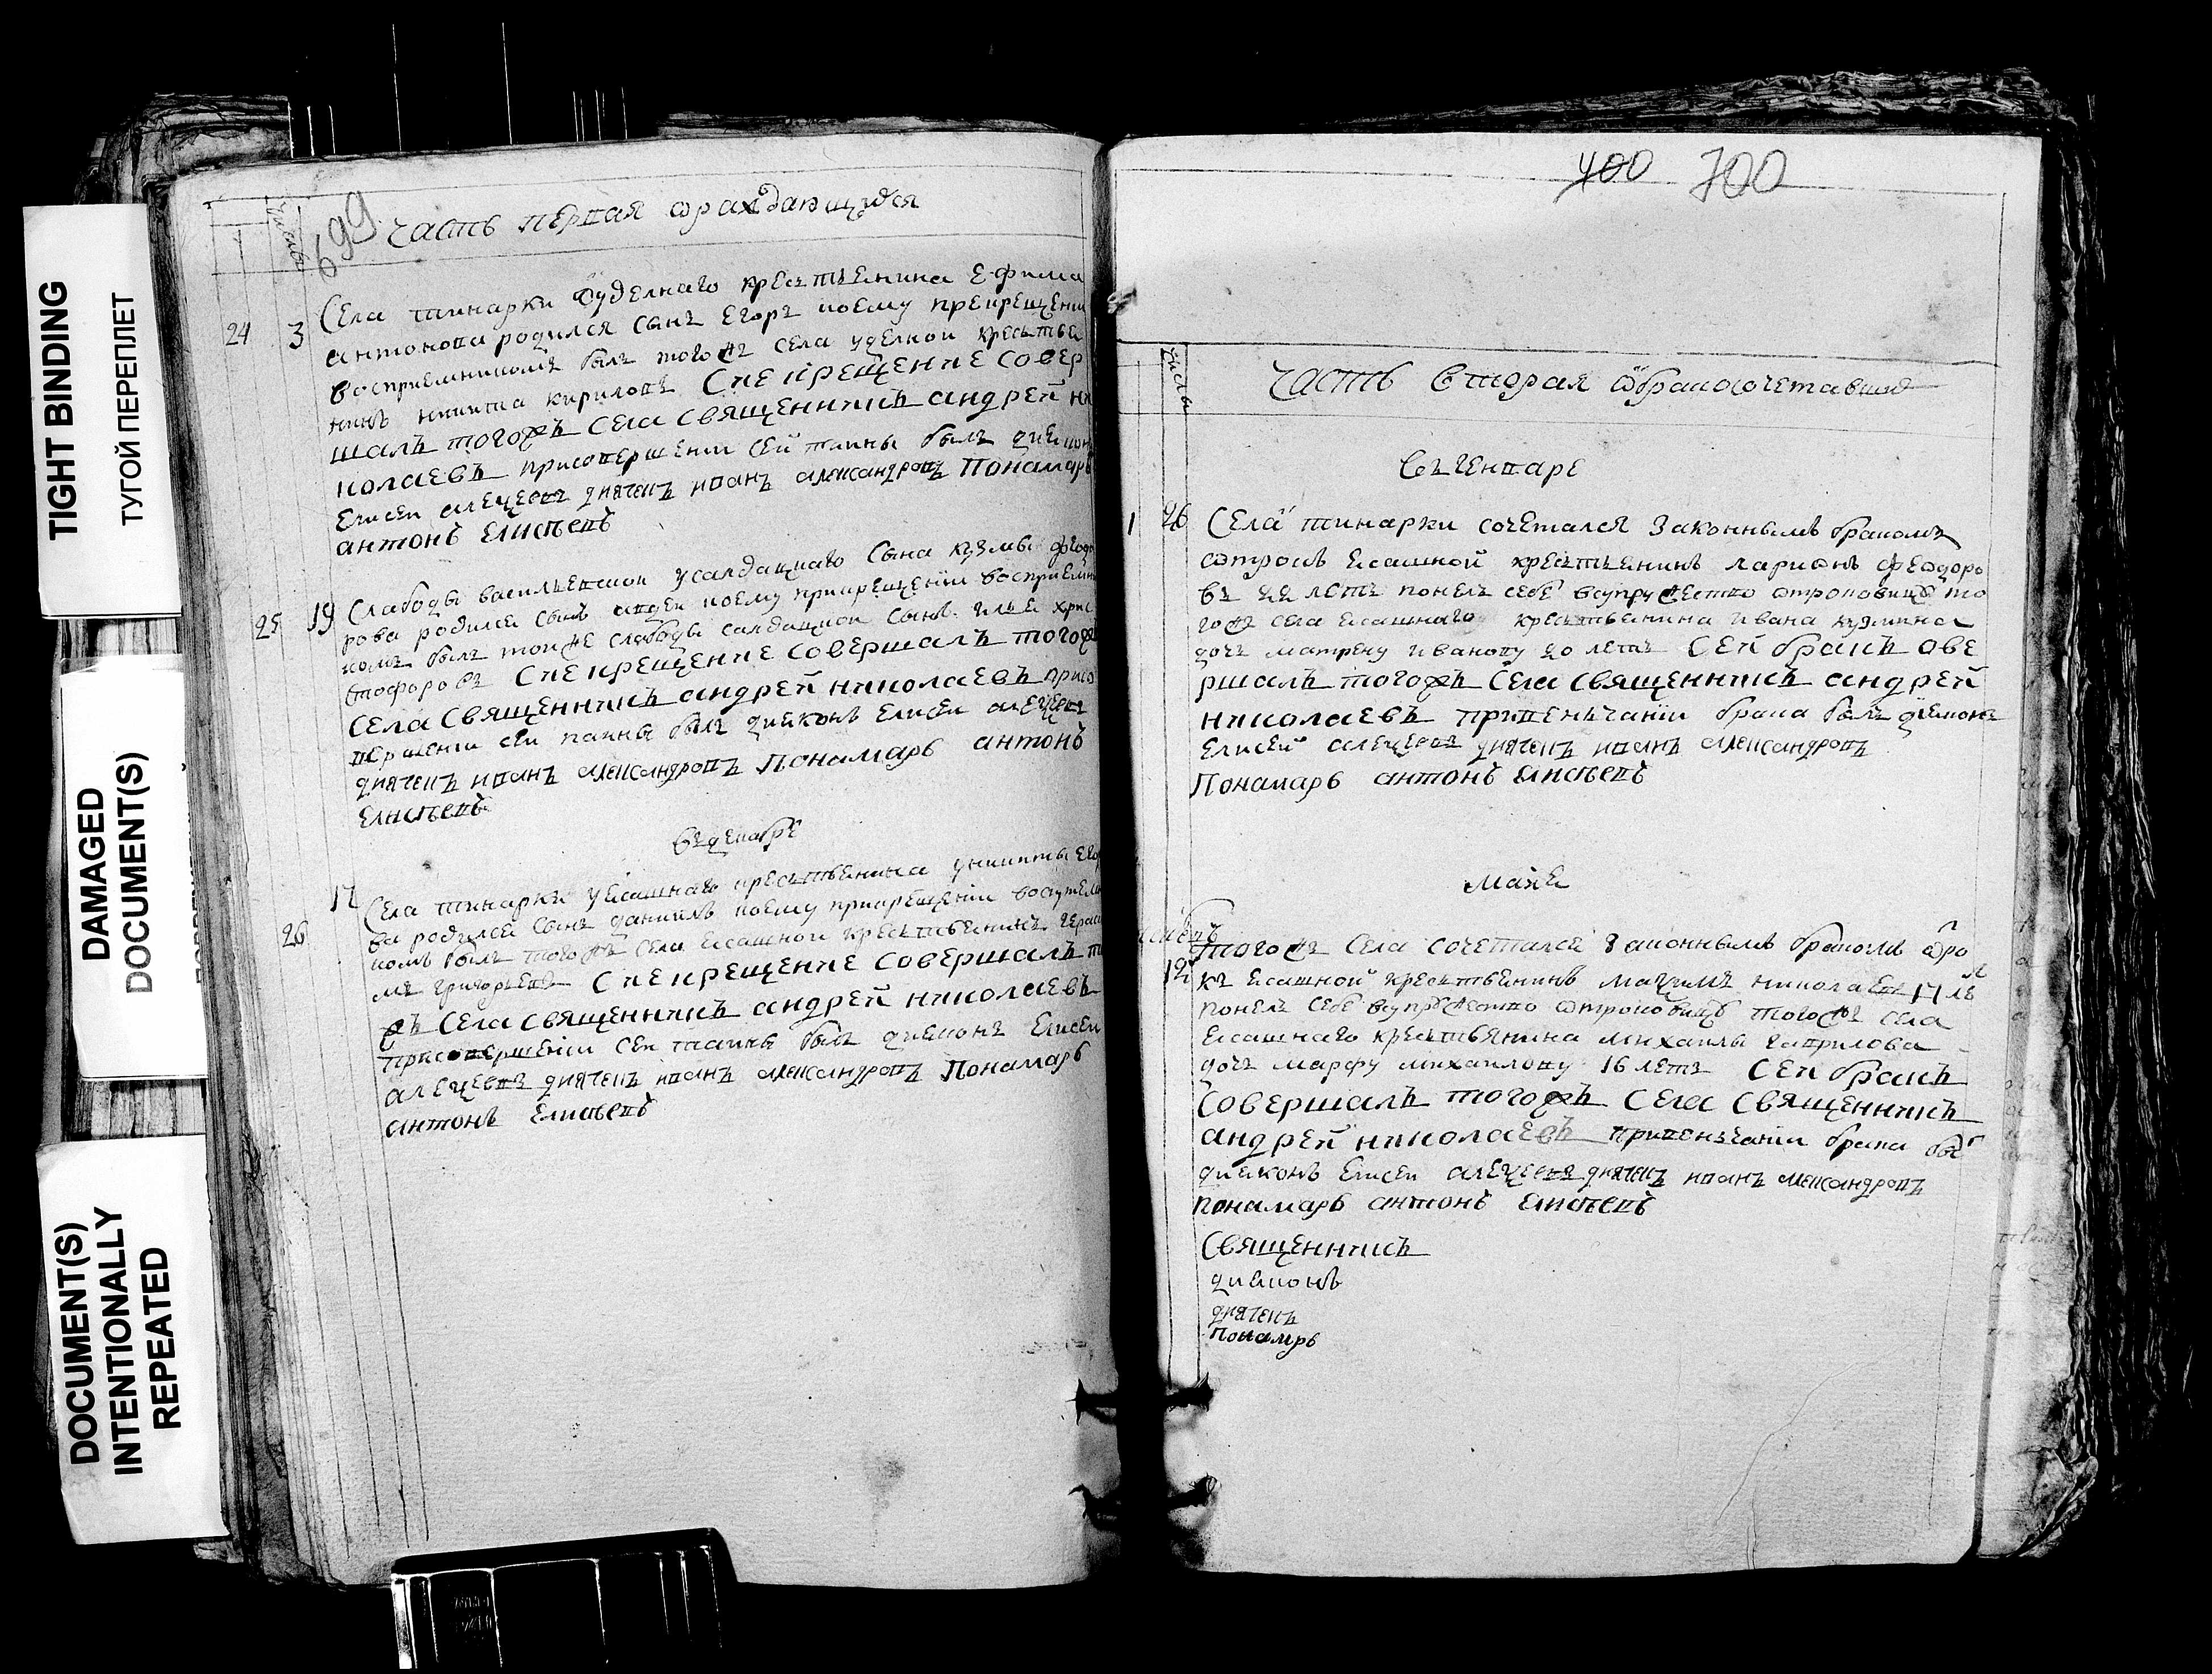 TIGHT BINDING
ТУГОЙ ПЕРЕПЛЕТ
DAMAGED
DOCUMENT(S)
DOCUMENT(S)
INTENTIONALLY
REPEATED
числа
699
часть первая о раждающихся
24 3 Села тинарки ууделнаго крестьенина Ефима
антонова родился сынъ Егоръ коему прекрещении
восприемникомъ былъ тогожъ села уделной крестьве
нинъ никита кириловъ Сие крещение совер
шалъ тогожъ села священникъ андрей ни
колаевъ присовершении сей таины былъ диякон
Елисеи алеѯеевъ дьячекъ иванъ александровъ Понамарь
антонъ Елисѣевъ
25 19 Слабоды васильевской усалдацкаго сына кузмы федо
рова родился сынъ коему прикрещении восприемни
комъ былъ тойже слабоды салдацкой сынъ илья хрис
тофоровъ Сие крещение совершалъ тогожъ
села священникъ андрей николаевъ присо
вершении сеи таины былъ дияконъ Елисеи алеѯеевъ
дьячекъ иванъ александровъ Понамарь антонъ
Елисѣевъ
въ декабре
26 17 Села тинарки уясашнаго крестьвенина уникиты Его
ва родился сынъ данилъ коему прикрещении
комъ былъ тогожъ села ясашной крестьвенинъ гераси
мъ григорьевъ Сие крещение совершалъ то
жъ села священникъ андрей николаевъ
присовершении сеи таины былъ дияконъ Елисеи
алеѯеевъ дьячекъ иванъ александровъ Понамарь
антонъ Елисѣевъ
400 700
числы
часть вторая о бракосочетавшихся
въ генваре
1 26 Села тинарки сочетался законнымъ бракомъ
отрокъ ясашной крестьвенинъ ларионъ феодоро
въ 22 летъ понелъ себе всупружество отроковицу то
гожъ села ясашнаго крестьвенина ивана кузмина
дочь матрену иванову 20 летъ Сей бракъ сове
ршалъ тогожъ села священникъ андрей
николаевъ привенъчании брака былъ дияконъ
Елисей алеѯеевъ дьячекъ иванъ александровъ
Понамарь антонъ Елисѣевъ
майе
12 тогожъ села сочетался законнымъ бракомъ отро
къ ясашной крестьвенинъ маѯимъ николаевъ 17 лѣ
понелъ себе всупружество отроковицу тогожъ села
ясашнаго крестьвянина михаилы гаврилова
дочь марфу михаилову 16 летъ Сей бракъ
совершалъ тогожъ села священникъ
андрей николаевъ привенъчании брака был
дияконъ Елисеи алеѯеевъ дьячекъ иванъ александровъ
понамарь антонъ Елисѣевъ
Священникъ
дияконъ
дьячекъ
понамрь